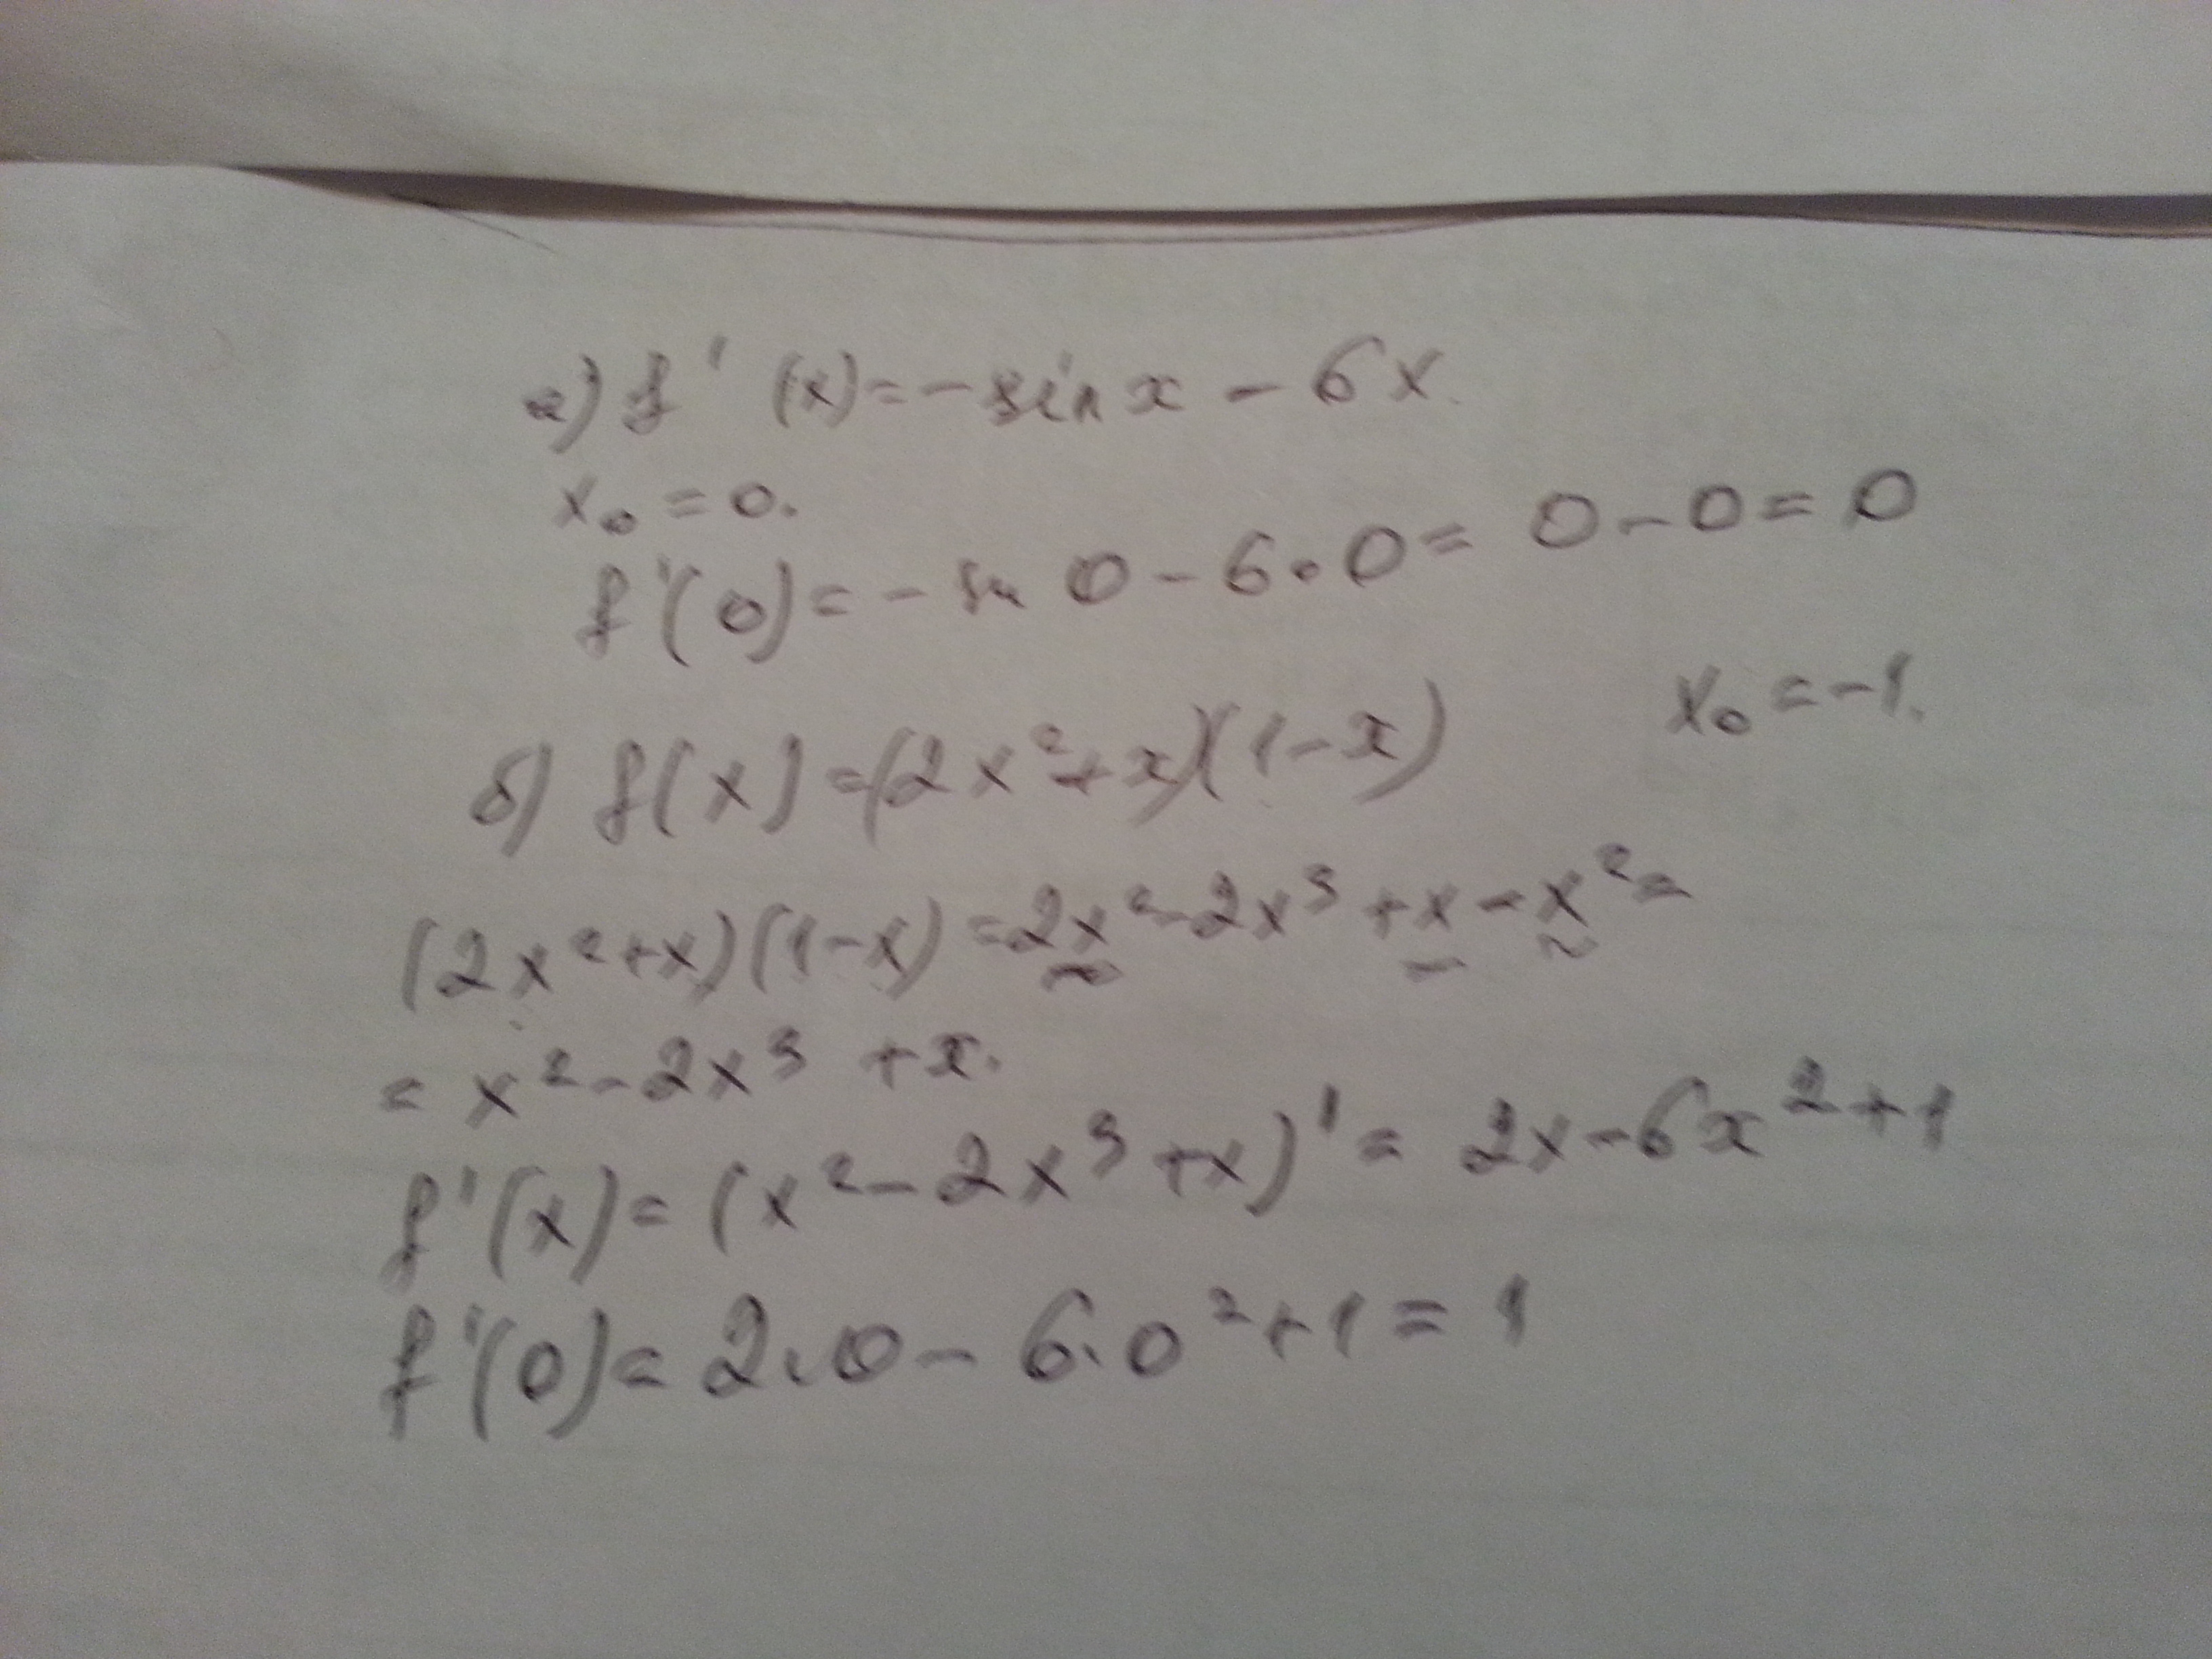 а) f'(x)=-sin x - 6x.
x₀ = 0.
f'(0)=-sin 0-6·0= 0-0=0
б) f(x)=(2x²+x)(1-x) x₀=-1.
(2x²+x)(1-x)=2x²-2x³+x-x²=
= x²-2x³ +x.
f'(x)=(x²-2x³+x)'= 2x-6x²+1
f'(0)=2·0-6·0²+1=1